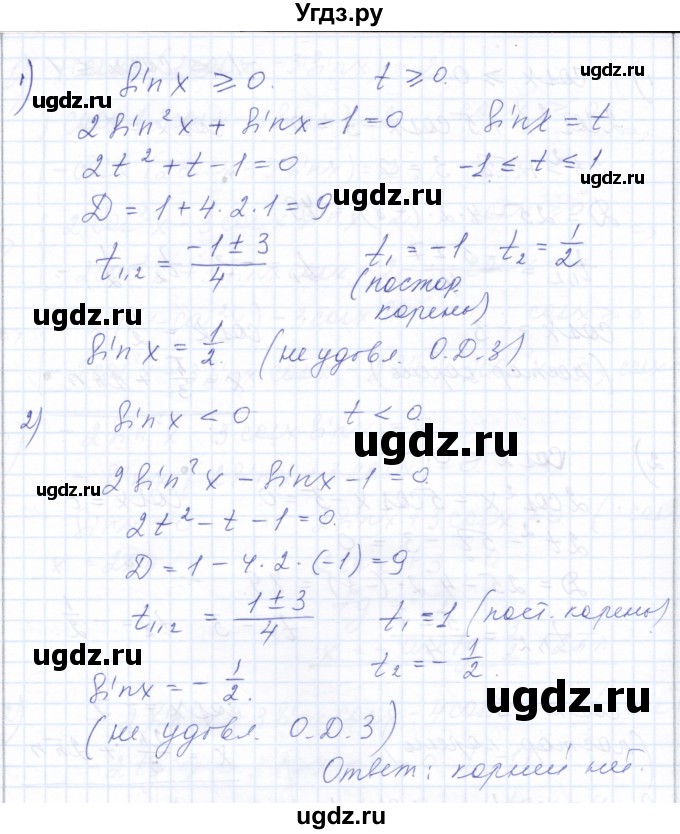 Угдз.ру
1) sin x ⩾ 0. t ⩾ 0.
ugdz.ru
2 sin²x + sin x − 1 = 0 sin x = t
2t² + t − 1 = 0 −1 ≤ t ≤ 1
ugdz.ru
D = 1 + 4 · 2 · 1 = 9
ugdz.ru
t₁,₂ = (−1 ± 3)/4 t₁ = −1 t₂ = 1/2
(постор. корень)
ugdz.ru
ugdz.ru
sin x = 1/2. (не удовл. О.Д.З.)
2) sin x < 0 t < 0
ugdz.ru
2 sin²x − sin x − 1 = 0.
ugdz.ru
ugdz.ru
2t² − t − 1 = 0.
D = 1 − 4 · 2 · (−1) = 9
t₁,₂ = (1 ± 3)/4 t₁ = 1 (пост. корень)
ugdz.ru
t₂ = − 1/2.
sin x = − 1/2.
ugdz.ru
(не удовл. О.Д.З)
Ответ: корней нет.
ugdz.ru